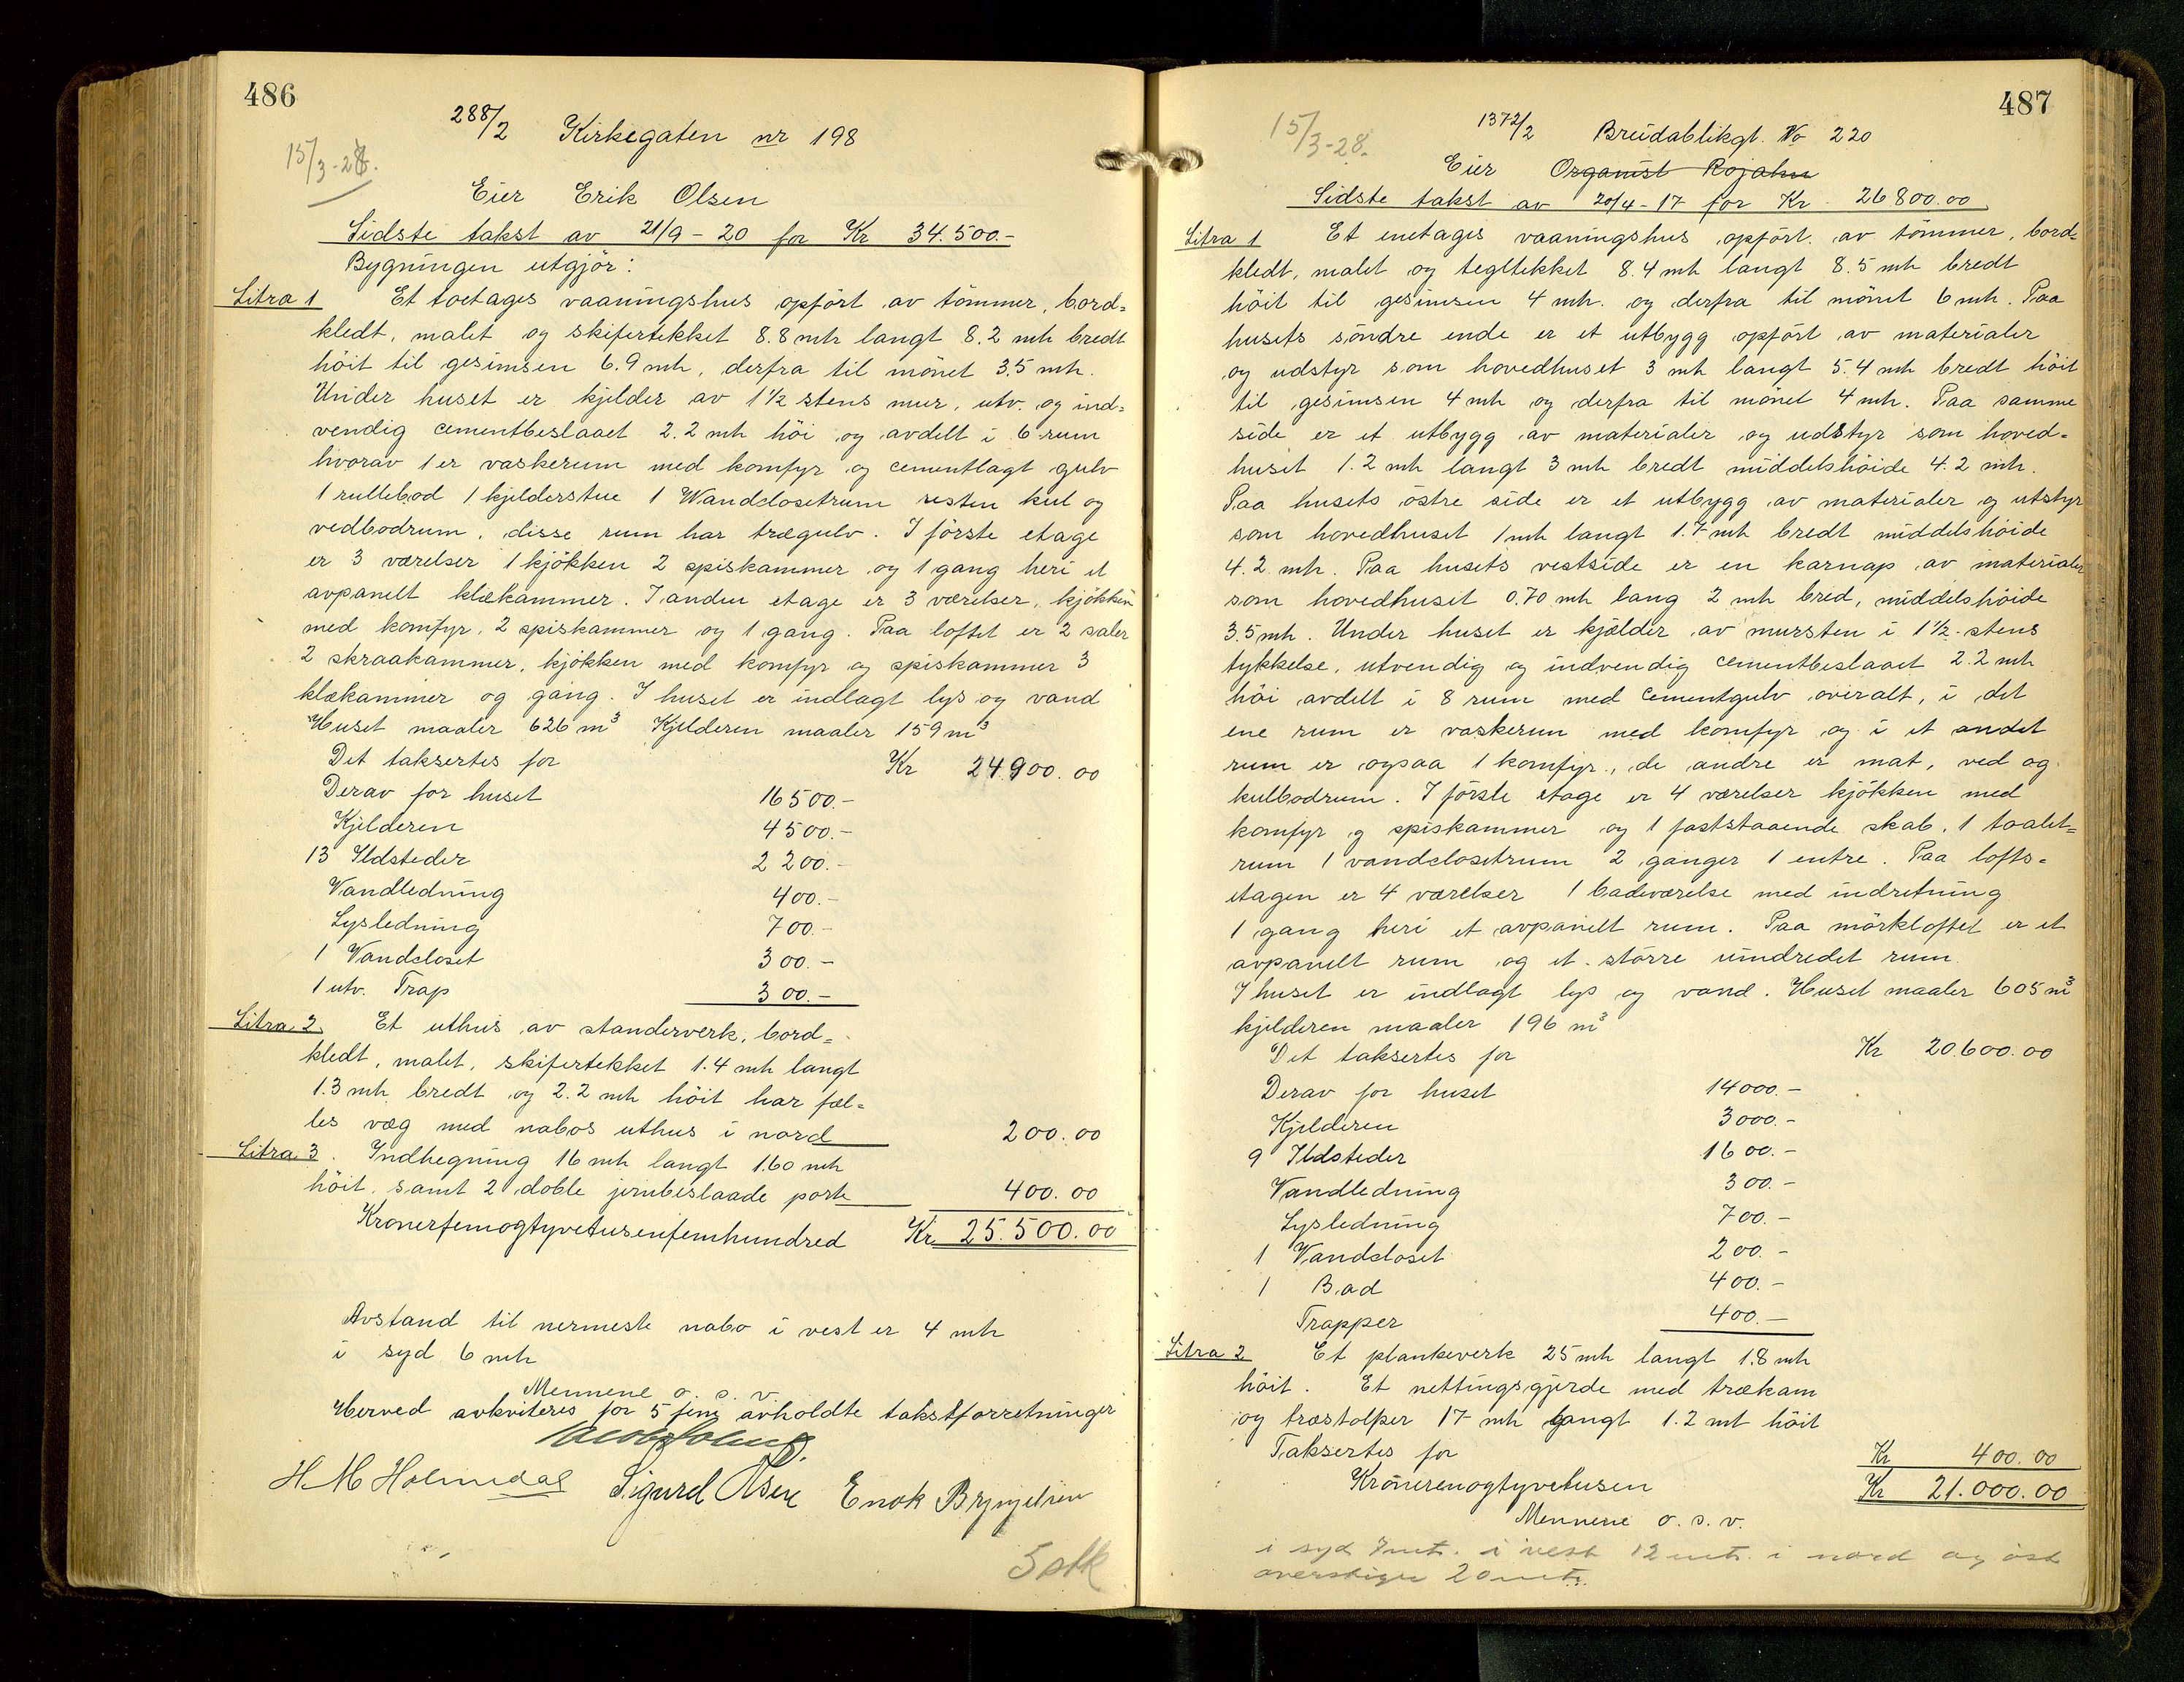 486
288/2 Kirkegaten nr 198
15/3-28.
Eier Erik Olsen
Sidste takst av 21/9 - 20 for Kr 34.500.-
Bygningen utgjör:
Litra 1 Et toetages vaaningshus opfört av tömmer, bord-
kledt, malet og skifertekket 8.8 mtr langt 8.2 mtr bredt
höit til gesimsen 6.9 mtr, derfra til mönet 3.5 mtr.
Under huset er kjelder av 1½ stens mur, utv. og ind-
vendig cementbeslaaet 2.2 mtr höi og avdelt i 6 rum
hvorav 1 er vaskerum med komfyr og cementlagt gulv
1 rullebod 1 kjelderstue 1 Wandclosetrum resten kul og
vedbodrum, disse rum har trægulv. I förste etage
er 3 værelser 1 kjökken 2 spiskammer og 1 gang heri et
avpanelt klækammer. I anden etage er 3 værelser, kjökken
med komfyr, 2 spiskammer og 1 gang. Paa loftet er 2 saler
2 skraakammer, kjökken med komfyr og spiskammer 3
klækammer og gang. I huset er indlagt lys og vand
Huset maaler 626 m³ Kjelderen maaler 159 m³
Det taksertes for Kr 24.900.00
Derav for huset 16500.-
Kjelderen 4500.-
13 Ildsteder 2200.-
Vandledning 400.-
Lysledning 700.-
1 Vandcloset 300.-
1 utv. Trap 300.-
Litra 2 Et uthus av standerverk, bord-
kledt, malet, skifertekket 1.4 mtr langt
1.3 mtr bredt og 2.2 mtr höit har fæl-
les væg med nabos uthus i nord 200.00
Litra 3. Indhegning 16 mtr langt 1.60 mtr
höit, samt 2 doble jernbeslaade porte 400.00
Kronerfemogtyvetusenfemhundred Kr 25.500.00
Avstand til nermeste nabo i vest er 4 mtr
i syd 6 mtr
Mennene o. s. v.
Herved avkviteres for 5 fem avholdte takstforretninger
H M Holmedal Sigurd Olsen Enok Brynjelsen
5 stk
487
15/3-28.
1372/2 Breidablikgt. No 220
Eier Organist Rojahn
Sidste takst av 20/4 - 17 for Kr 26800.00
Litra 1 Et enetages vaaningshus opfört av tömmer, bord-
kledt, malet og tegltekket 8.4 mtr langt 8.5 mtr bredt
höit til gesimsen 4 mtr. og derfra til mönet 6 mtr. Paa
husets söndre ende er et utbygg opfört av materialer
og udstyr som hovedhuset 3 mtr langt 5.4 mtr bredt höit
til gesimsen 4 mtr og derfra til mönet 4 mtr. Paa samme
side er et utbygg av materialer og udstyr som hoved-
huset 1.2 mtr langt 3 mtr bredt middelshöide 4.2 mtr.
Paa husets östre side er et utbygg av materialer og utstyr
som hovedhuset 1 mtr langt 1.7 mtr bredt middelshöide
4.2 mtr. Paa husets vestside er en karnap av materialer
som hovedhuset 0.70 mtr lang 2 mtr bred, middelshöide
3.5 mtr. Under huset er kjælder av mursten i 1½ stens
tykkelse, utvendig og indvendig cementbeslaaet 2.2 mtr
höi avdelt i 8 rum med cementgulv overalt, i det
ene rum er vaskerum med komfyr og i et andet
rum er ogsaa 1 komfyr., de andre er mat, ved og
kulbodrum. I förste etage er 4 værelser kjökken med
komfyr og spiskammer og 1 faststaaende skab, 1 toalet-
rum 1 vandclosetrum 2 ganger 1 entre. Paa lofts-
etagen er 4 værelser 1 badeværelse med indretning
1 gang heri et avpanelt rum. Paa mörkloftet er et
avpanelt rum og et större uindredet rum.
I huset er indlagt lys og vand. Huset maaler 605 m³
kjelderen maaler 196 m³
Det taksertes for Kr 20.600.00
Derav for huset 14000.-
Kjelderen 3000.-
9 Ildsteder 1600.-
Vandledning 300.-
Lysledning 700.-
1 Vandcloset 200.-
1 Bad 400.-
Trapper 400.-
Litra 2 Et plankeverk 25 mtr langt 1.8 mtr
höit. Et nettingsgjerde med trækam
og træstolper 17 mtr langt 1.2 mt höit
Taksertes for Kr 400.00
Kronerenogtyvetusen Kr 21.000.00
Mennene o. s. v.
i syd 7 mtr. i vest 12 mtr. i nord og öst
overstiger 20 mtr.